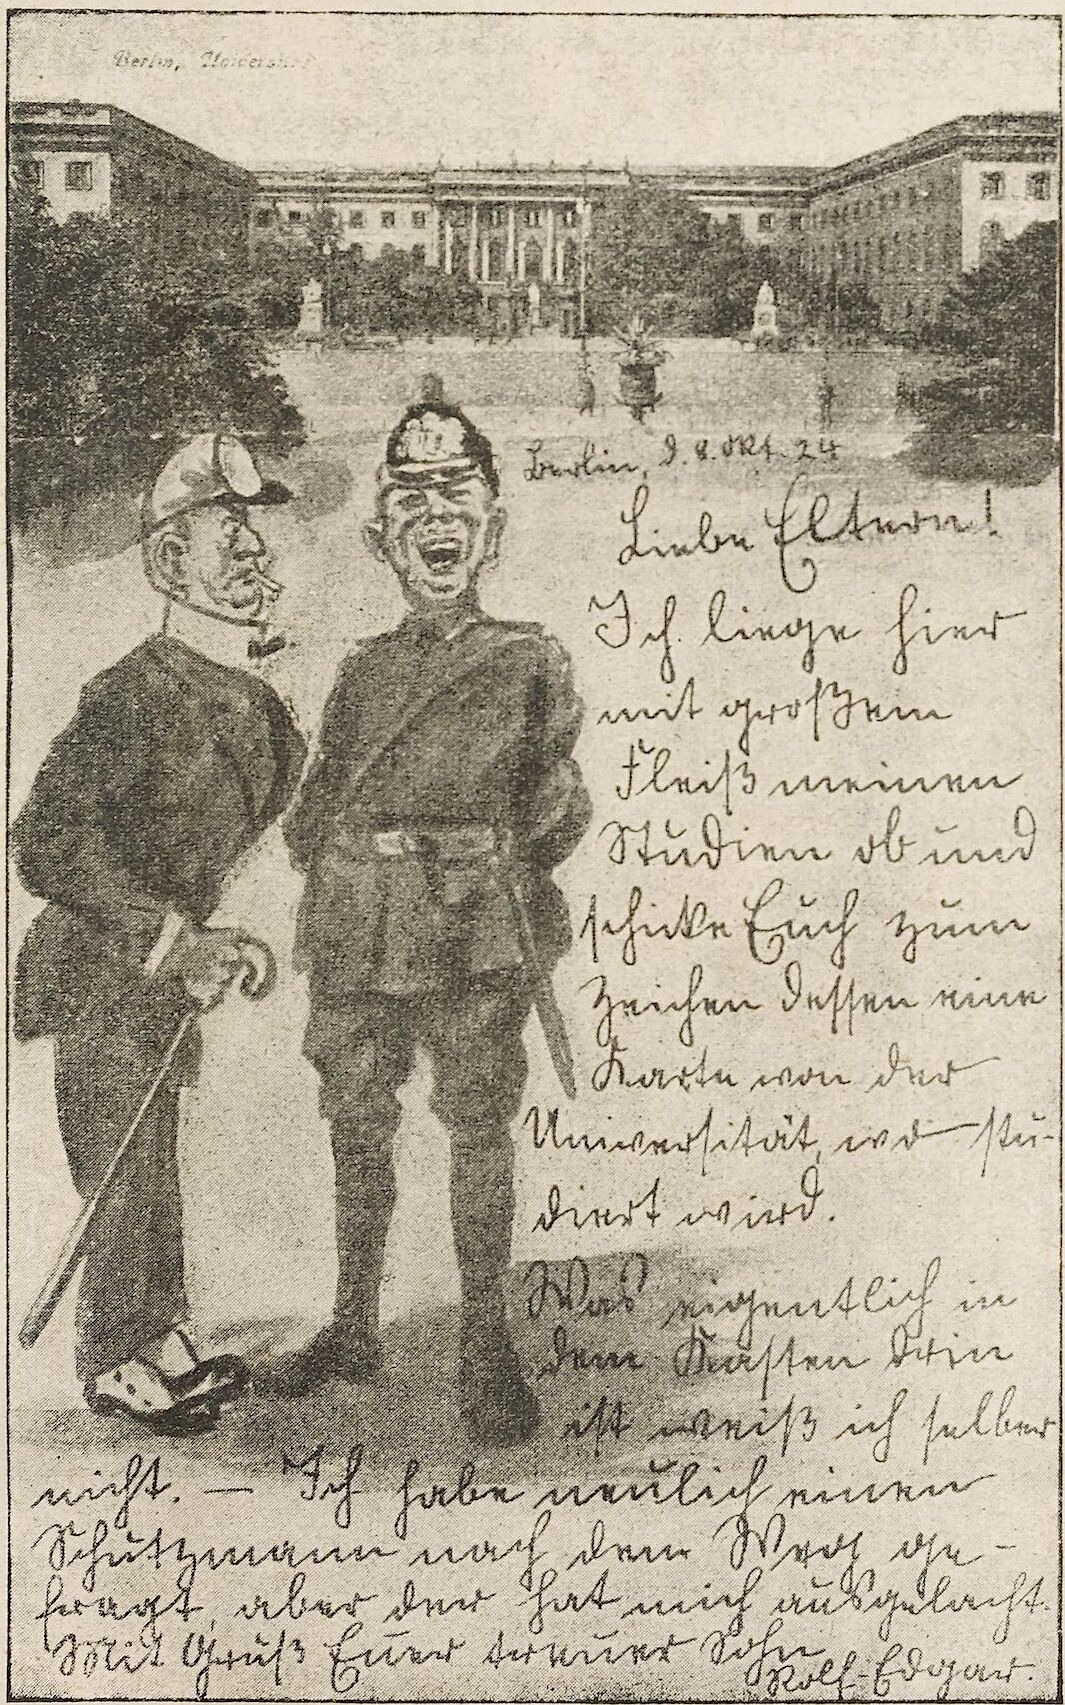 Berlin, Universität
Berlin, d. 8. Okt. 24
Liebe Eltern!
Ich liege hier
mit großem
Fleiß meinen
Studien ob und
schicke Euch zum
Zeichen dessen eine
Karte von der
Universität, wo stu-
diert wird.
Was eigentlich in
dem Kasten drin
ist weiß ich selber
nicht. — Ich habe neulich einen
Schutzmann nach dem Weg ge-
fragt, aber der hat mich ausgelacht.
Mit Gruß Euer treuer Sohn
Rolf-Edgar.